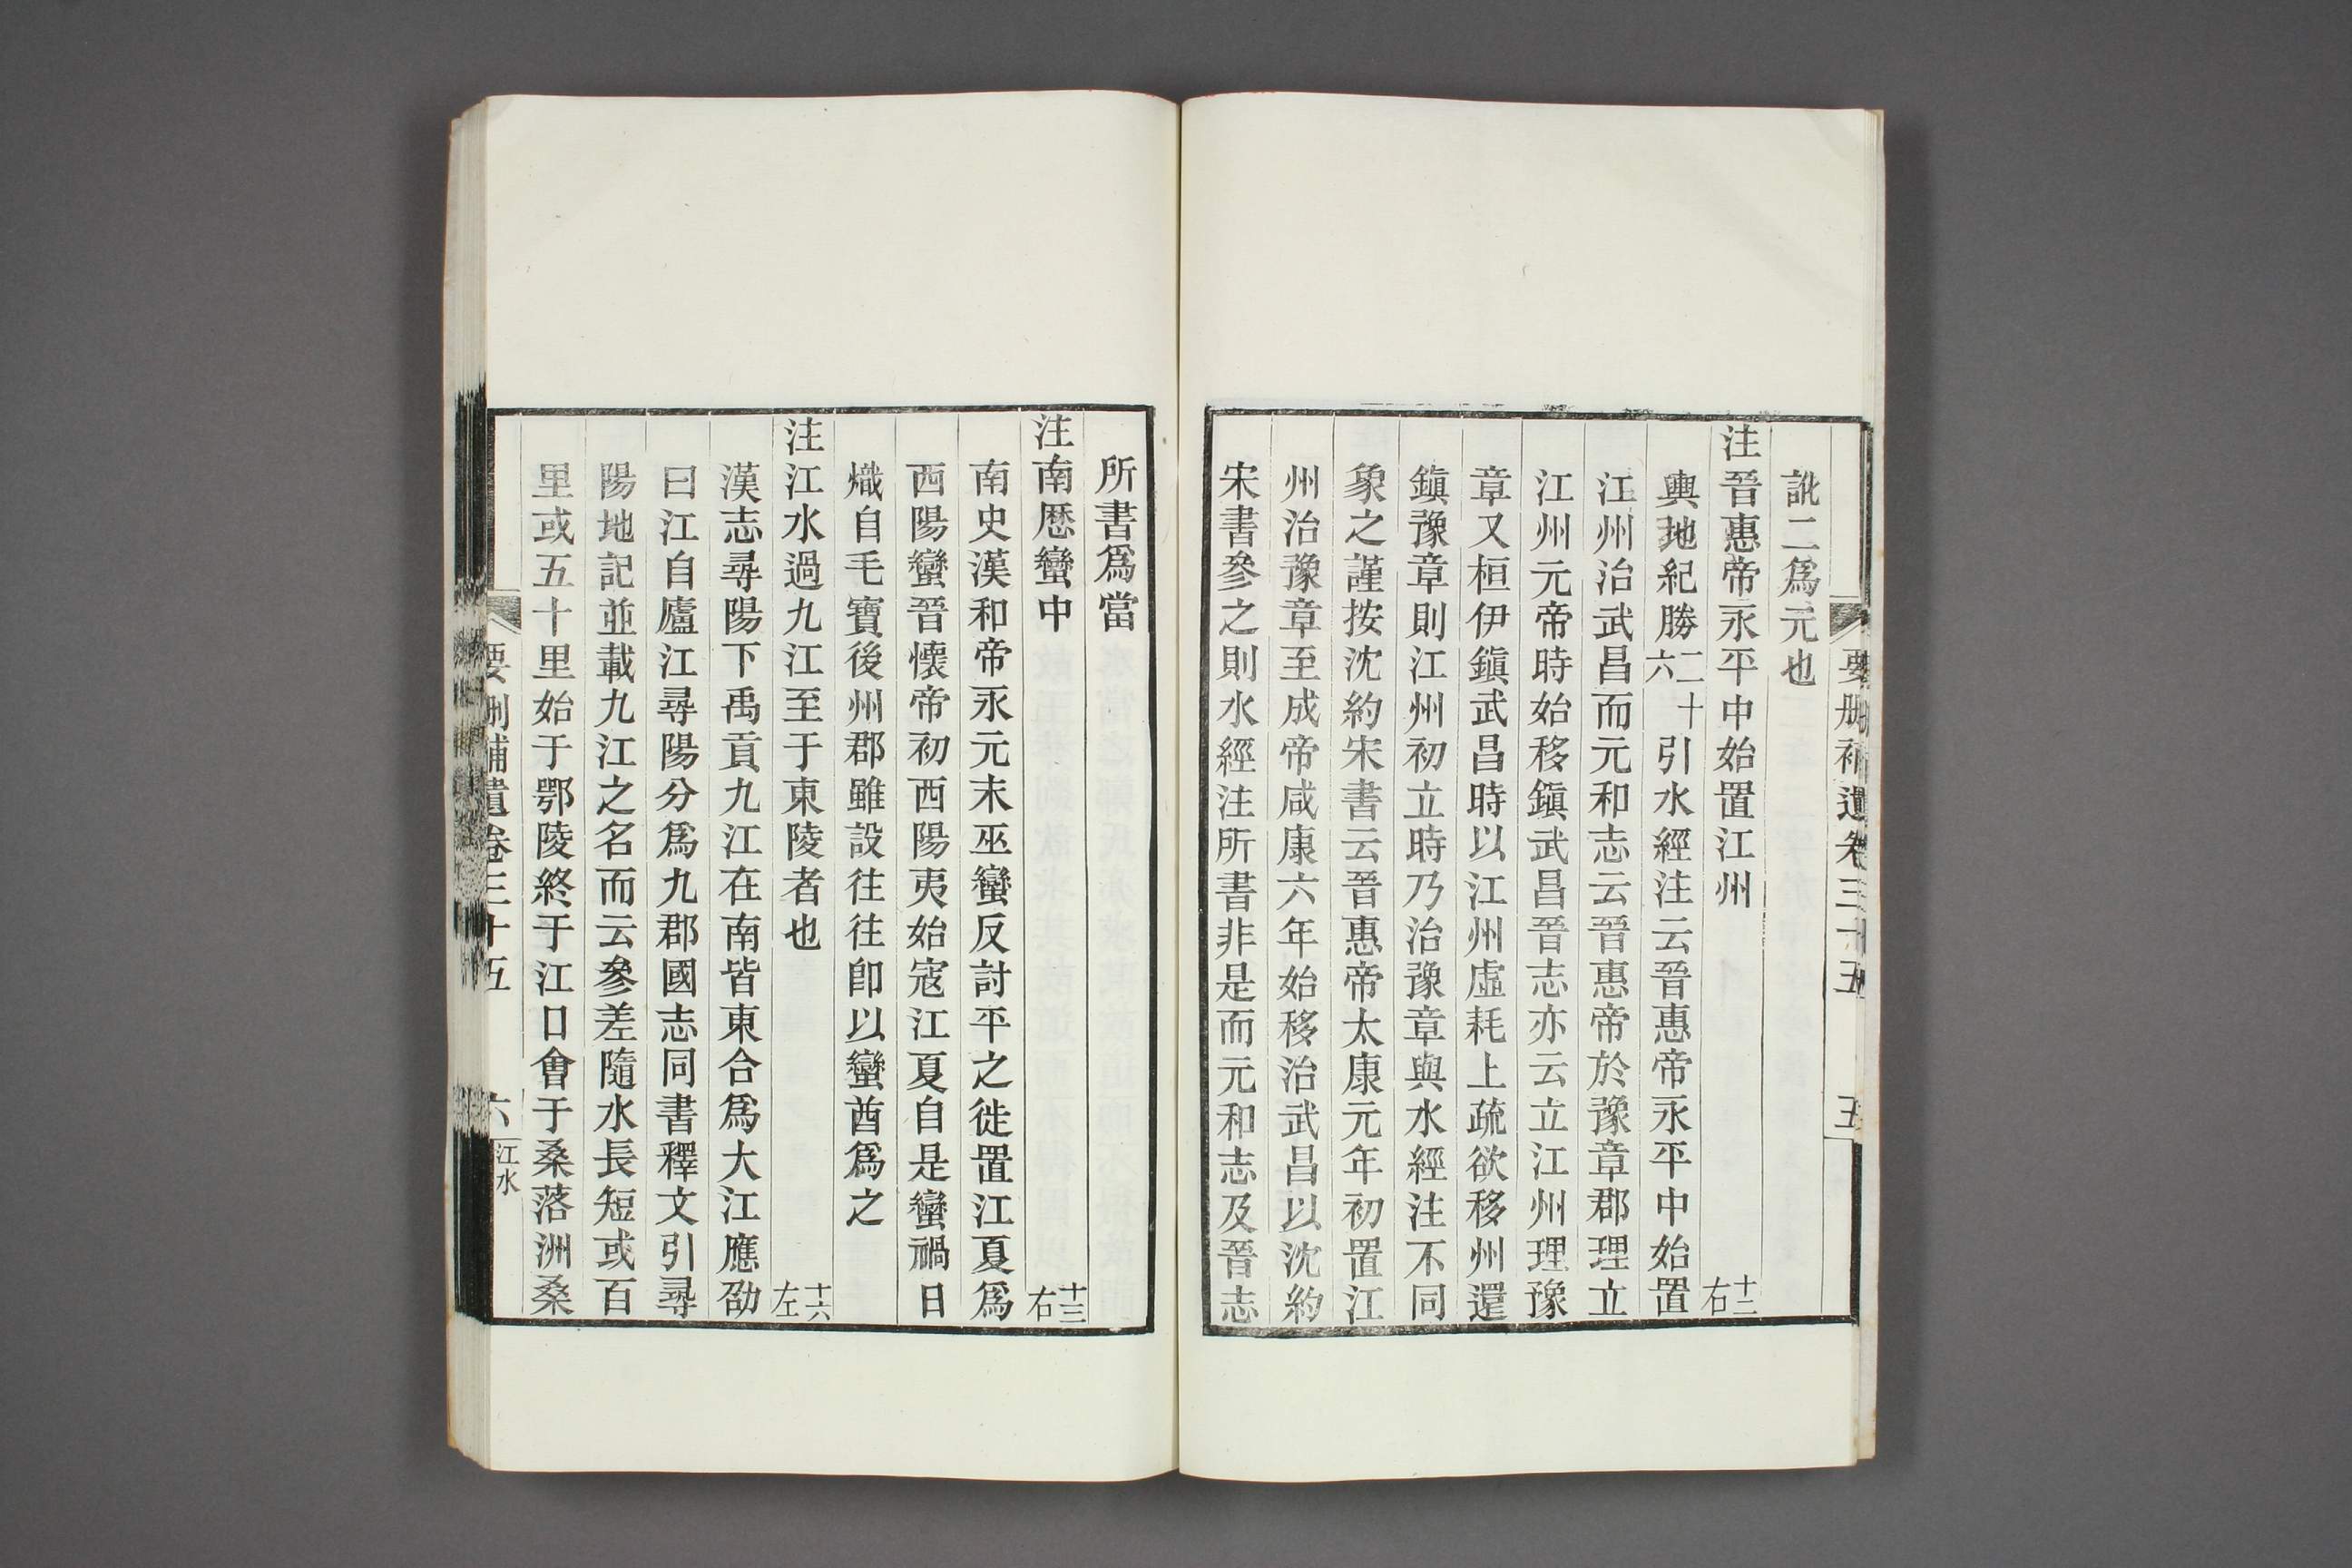 要刪補遺卷三十五
五
訛二爲元也
注晉惠帝永平中始置江州 十二右
輿地紀勝二十六引水經注云晉惠帝永平中始置
江州治武昌而元和志云晉惠帝於豫章郡理立
江州元帝時始移鎭武昌晉志亦云立江州理豫
章又桓伊鎭武昌時以江州虛耗上疏欲移州還
鎭豫章則江州初立時乃治豫章與水經注不同
象之謹按沈約宋書云晉惠帝太康元年初置江
州治豫章至成帝咸康六年始移治武昌以沈約
宋書參之則水經注所書非是而元和志及晉志
所書爲當
注南歷蠻中 十三右
南史漢和帝永元末巫蠻反討平之徙置江夏爲
西陽蠻晉懷帝初西陽夷始寇江夏自是蠻禍日
熾自毛寶後州郡雖設往往卽以蠻酋爲之
注江水過九江至于東陵者也 十六左
漢志尋陽下禹貢九江在南皆東合爲大江應劭
曰江自廬江尋陽分爲九郡國志同書釋文引尋
陽地記並載九江之名而云參差隨水長短或百
里或五十里始于鄂陵終于江口會于桑落洲桑
要刪補遺卷三十五
六
江水